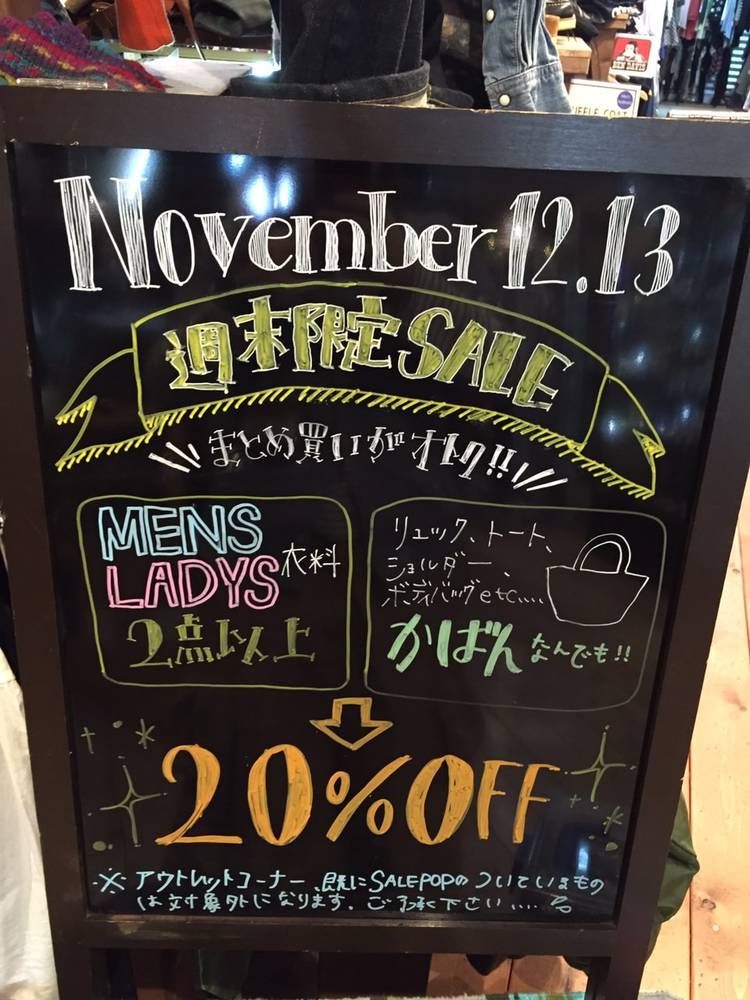 BEN DAVIS
November 12.13
週末限定SALE
まとめ買いがオトク!!
MENS
LADYS 衣料
2点以上
リュック、トート、
ショルダー、
ボディバッグetc....
かばん なんでも!!
20%OFF
※ アウトレットコーナー、既にSALEPOPのついているもの
は対象外になります。ご了承下さい....